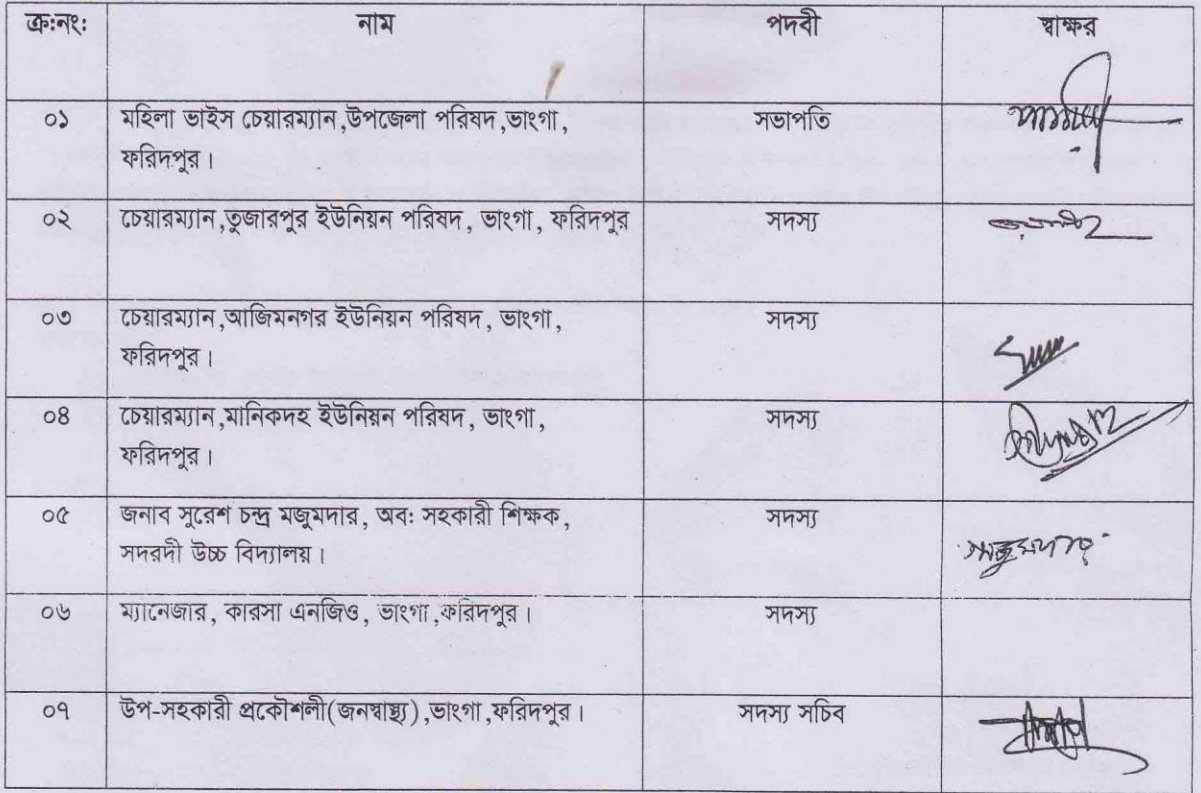 ক্র:নং: নাম পদবী স্বাক্ষর
০১ মহিলা ভাইস চেয়ারম্যান,উপজেলা পরিষদ,ভাংগা, সভাপতি
ফরিদপুর।
০২ চেয়ারম্যান,তুজারপুর ইউনিয়ন পরিষদ, ভাংগা, ফরিদপুর সদস্য
০৩ চেয়ারম্যান,আজিমনগর ইউনিয়ন পরিষদ, ভাংগা, সদস্য
ফরিদপুর।
০৪ চেয়ারম্যান,মানিকদহ ইউনিয়ন পরিষদ, ভাংগা, সদস্য
ফরিদপুর।
০৫ জনাব সুরেশ চন্দ্র মজুমদার, অব: সহকারী শিক্ষক, সদস্য
সদরদী উচ্চ বিদ্যালয়।
০৬ ম্যানেজার, কারসা এনজিও, ভাংগা,করিদপুর। সদস্য
০৭ উপ-সহকারী প্রকৌশলী(জনস্বাস্থ্য),ভাংগা,ফরিদপুর। সদস্য সচিব